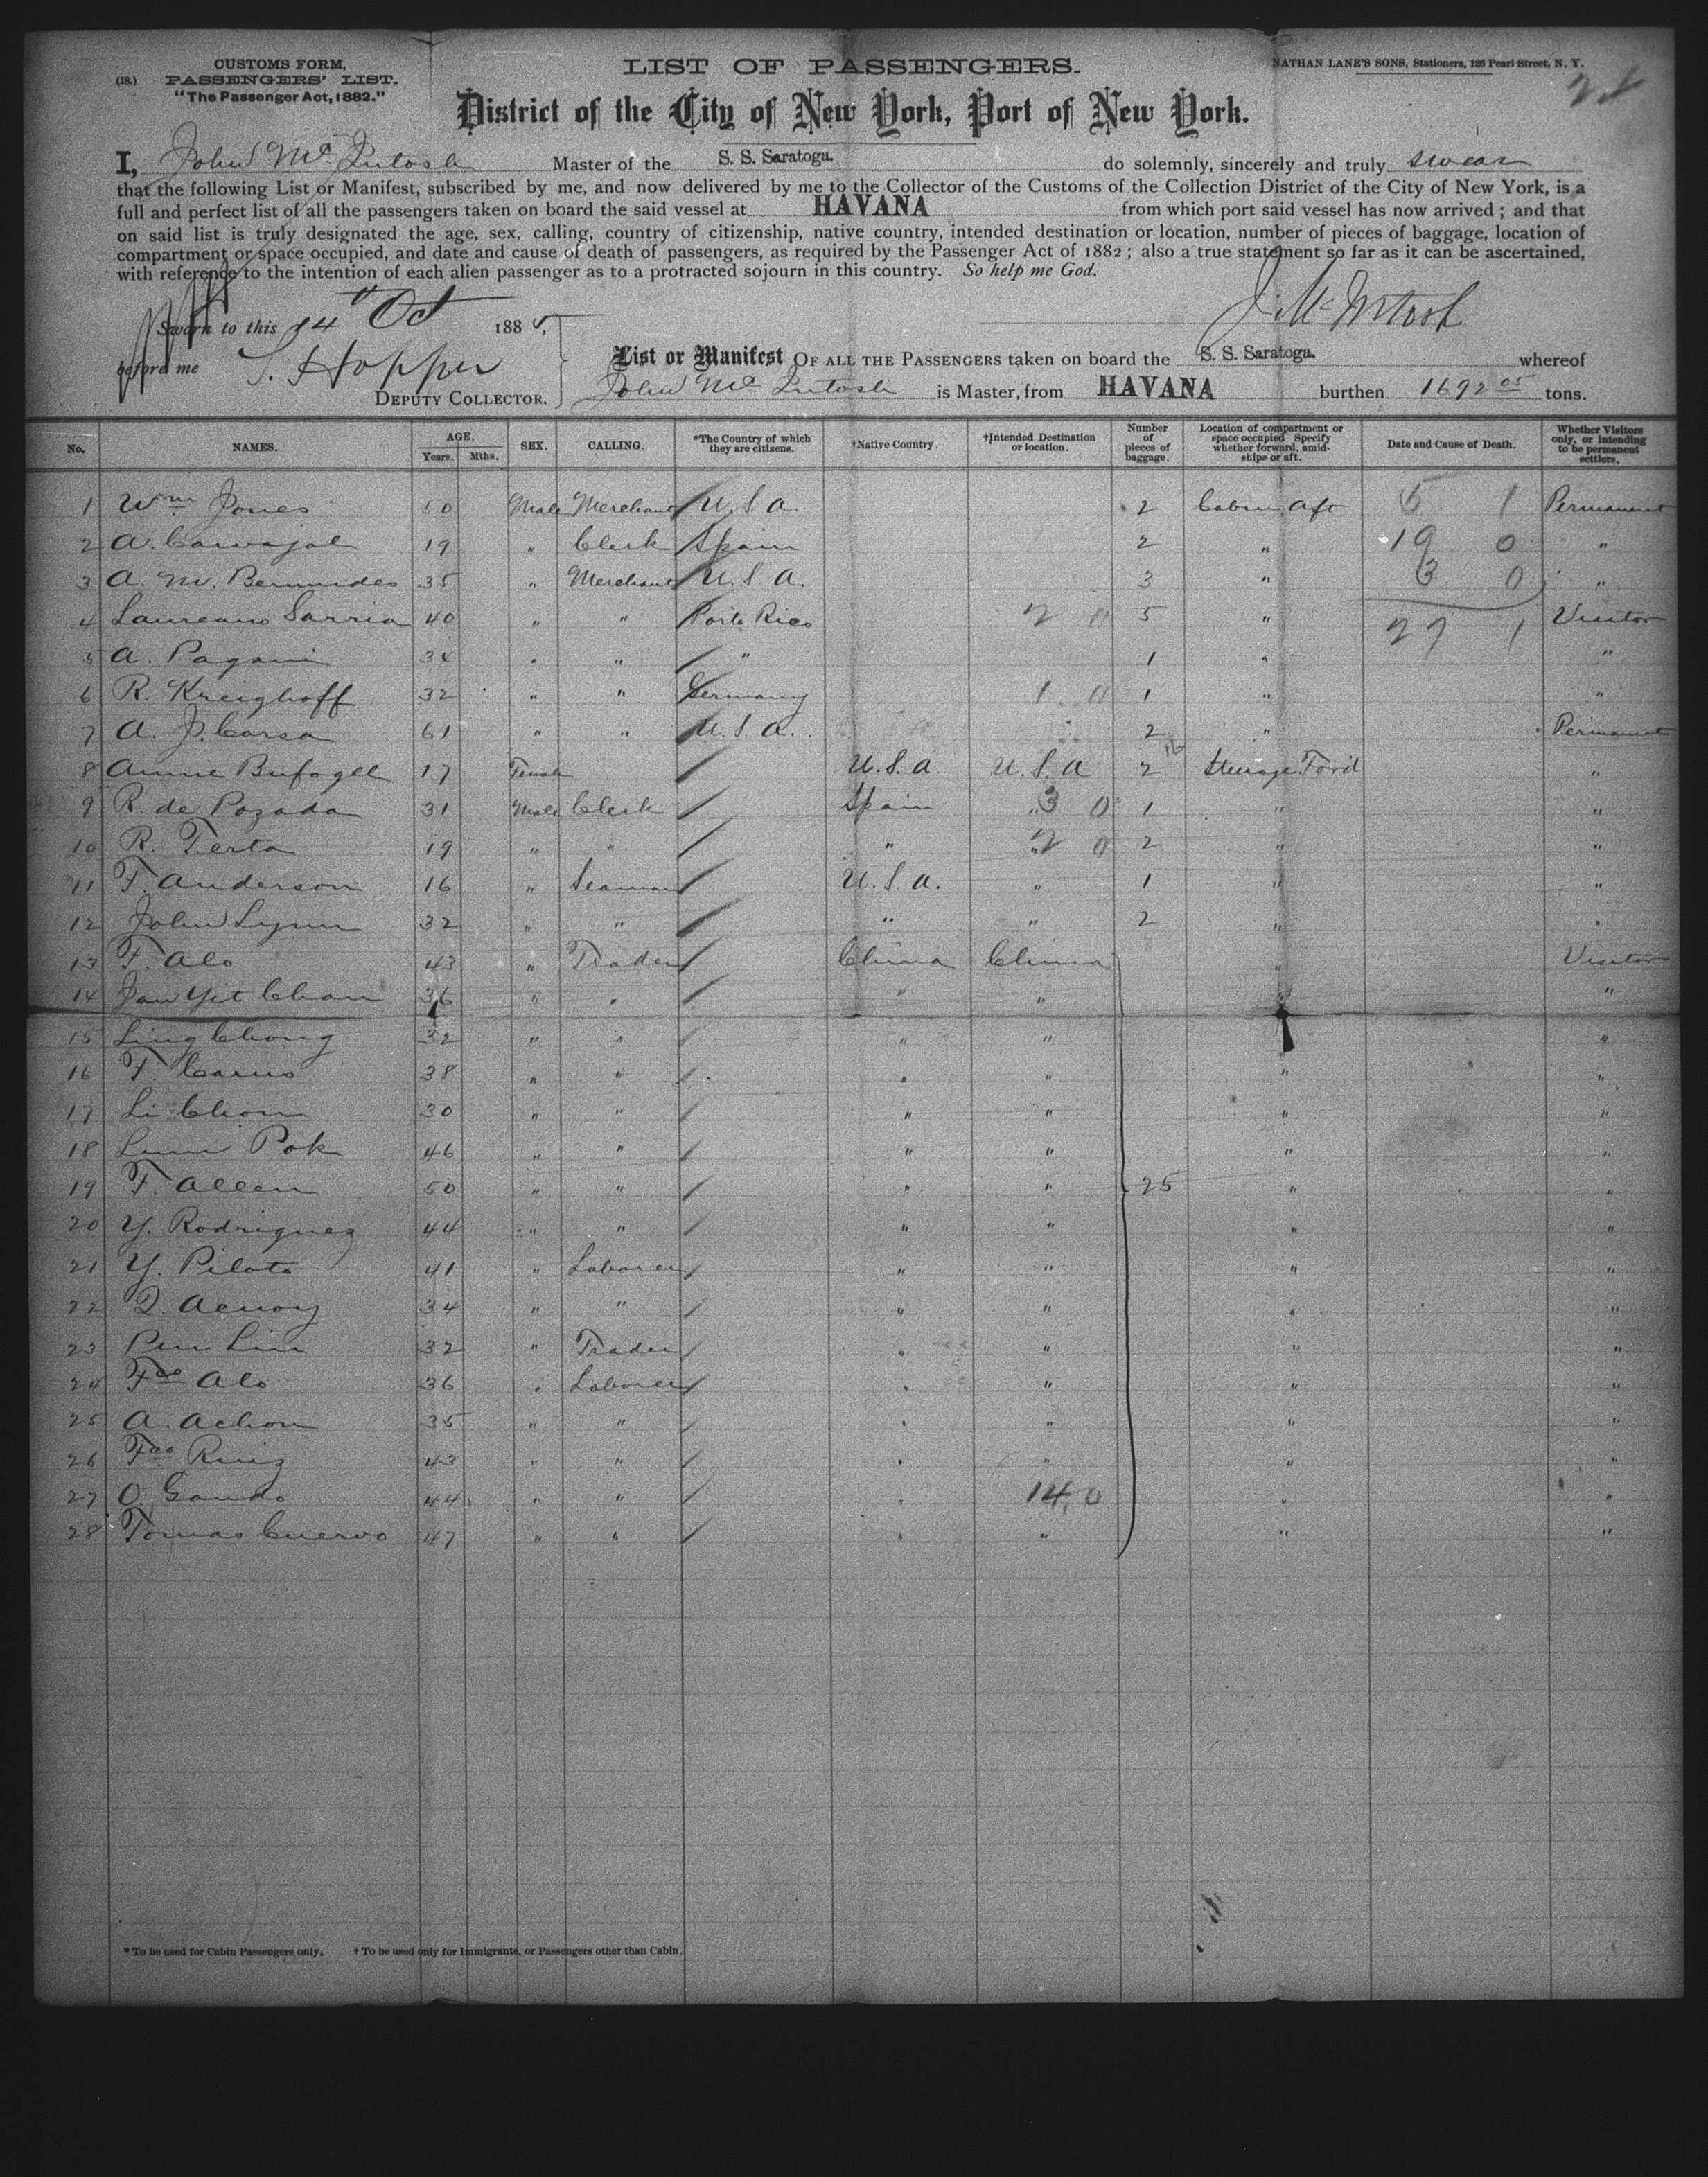 CUSTOMS FORM,
(18.) PASSENGERS' LIST.
"The Passenger Act, 1882."
LIST OF PASSENGERS.
NATHAN LANE'S SONS, Stationers, 126 Pearl Street, N. Y.
District of the City of New York, Port of New York.
I, John McIntosh Master of the S. S. Saratoga. do solemnly, sincerely and truly swear
that the following List or Manifest, subscribed by me, and now delivered by me to the Collector of the Customs of the Collection District of the City of New York, is a
full and perfect list of all the passengers taken on board the said vessel at HAVANA from which port said vessel has now arrived; and that
on said list is truly designated the age, sex, calling, country of citizenship, native country, intended destination or location, number of pieces of baggage, location of
compartment or space occupied, and date and cause of death of passengers, as required by the Passenger Act of 1882; also a true statement so far as it can be ascertained,
with reference to the intention of each alien passenger as to a protracted sojourn in this country. So help me God.
J. McIntosh
Sworn to this 14th Oct 188
before me S. Hopper
DEPUTY COLLECTOR.
List or Manifest OF ALL THE PASSENGERS taken on board the S. S. Saratoga. whereof
John McIntosh is Master, from HAVANA burthen 1692 05 tons.
No. NAMES. AGE. Years. Mths. SEX. CALLING. *The Country of which they are citizens. †Native Country. †Intended Destination or location. Number of pieces of baggage. Location of compartment or space occupied Specify whether forward, amidships or aft. Date and Cause of Death. Whether Visitors only, or intending to be permanent settlers.
1 Wm Jones 50 Male Merchant U.S.A. 2 Cabin Aft 5 1 Permanent
2 A. Carvajal 19 " Clerk Spain 2 " 19 0 "
3 A. M. Bermudes 35 " Merchant U.S.A. 3 " 3 0 "
4 Laureano Sarria 40 " " Porto Rico 2 0 5 " 27 1 Visitor
5 A. Pagani 34 " " " 1 " "
6 R. Kreighoff 32 " " Germany 1 0 1 " "
7 A. J. Carsa 61 " " U.S.A. 2 " Permanent
8 Annie Bufogle 17 Female U.S.A. U.S.A 2 Steerage For'd "
9 R. de Pozada 31 Male Clerk Spain " 3 0 1 " "
10 R. Terta 19 " " " " 2 0 2 " "
11 F. Anderson 16 " Seaman U.S.A. " 1 " "
12 John Lynn 32 " " " " 2 " "
13 F. Alo 43 " Trader China China " Visitor
14 Jaw Yit Chan 36 " " " " " "
15 Ling Chong 32 " " " " "
16 F. Carus 38 " " " " " "
17 Li Chon 30 " " " " " "
18 Lum Pok 46 " " " " " "
19 F. Allen 50 " " " " 25 " "
20 Y. Rodriguez 44 " " " " " "
21 Y. Piloto 41 " Laborer " " " "
22 Acuoy 34 " " " " " "
23 Pen Lin 32 " Trader " " " "
24 Fco Alo 36 " Laborer " " " "
25 A. Achon 35 " " " " " "
26 Fco Ruiz 43 " " " " " "
27 O. Gando 44 " " " 14 0 " "
28 Tomas Cuervo 47 " " " " " "
* To be used for Cabin Passengers only. † To be used only for Immigrants, or Passengers other than Cabin.